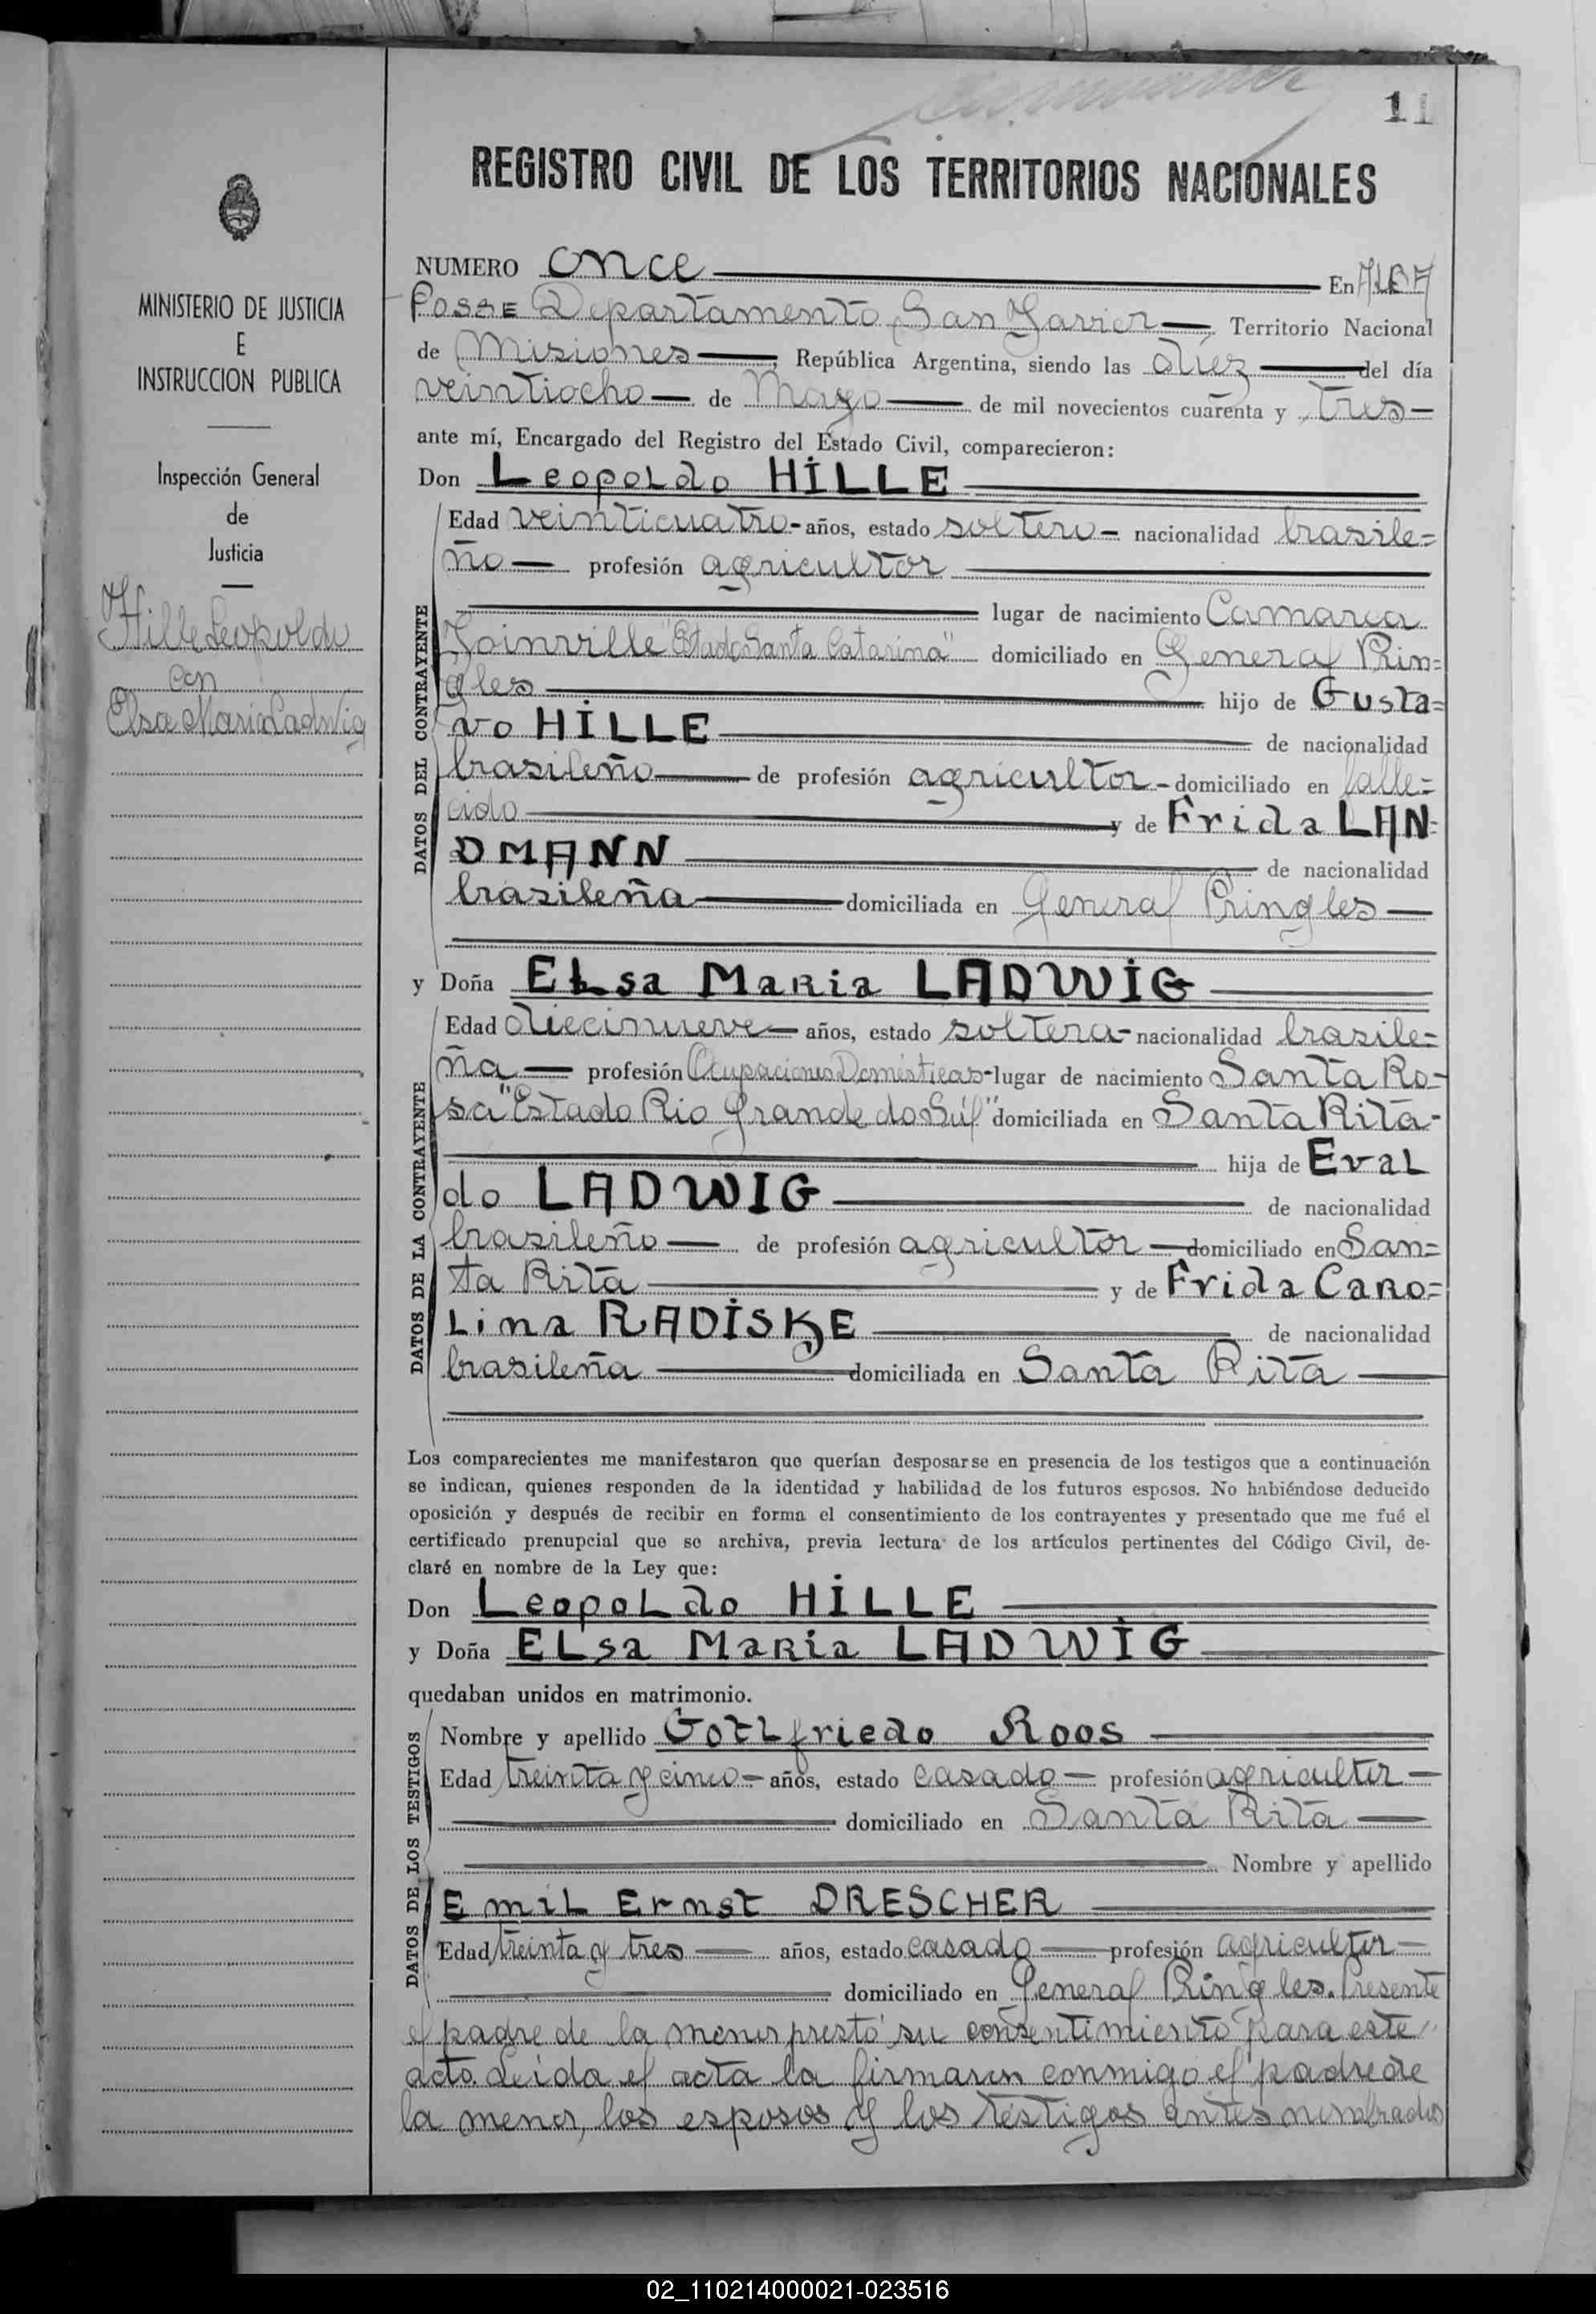 11
REGISTRO CIVIL DE LOS TERRITORIOS NACIONALES
MINISTERIO DE JUSTICIA
E
INSTRUCCION PUBLICA
Inspección General
de
Justicia
Hille Leopoldo
con
Elsa Maria Ladwig
NUMERO once En ALBA
POSSE Departamento San Javier Territorio Nacional
de Misiones, República Argentina, siendo las diez del día
veintiocho de Mayo de mil novecientos cuarenta y tres
ante mí, Encargado del Registro del Estado Civil, comparecieron:
Don Leopoldo HILLE
DATOS DEL CONTRAYENTE
Edad veinticuatro años, estado soltero nacionalidad brasile=
ño profesión agricultor
lugar de nacimiento Camarca
Joinville "Estado Santa Catarina" domiciliado en General Prin=
gles hijo de Gusta=
vo HILLE de nacionalidad
brasileño de profesión agricultor domiciliado en falle=
cido y de Frida LAN=
DMANN de nacionalidad
brasileña domiciliada en General Pringles
y Doña Elsa Maria LADWIG
DATOS DE LA CONTRAYENTE
Edad diecinueve años, estado soltera nacionalidad brasile=
ña profesión Ocupaciones Domésticas lugar de nacimiento Santa Ro-
sa "Estado Rio Grande do Súl" domiciliada en Santa Rita
hija de Eval
do LADWIG de nacionalidad
brasileño de profesión agricultor domiciliado en San=
ta Rita y de Frida Caro=
lina RADISKE de nacionalidad
brasileña domiciliada en Santa Rita
Los comparecientes me manifestaron que querían desposarse en presencia de los testigos que a continuación
se indican, quienes responden de la identidad y habilidad de los futuros esposos. No habiéndose deducido
oposición y después de recibir en forma el consentimiento de los contrayentes y presentado que me fué el
certificado prenupcial que se archiva, previa lectura de los artículos pertinentes del Código Civil, de-
claré en nombre de la Ley que:
Don Leopoldo HILLE
y Doña Elsa Maria LADWIG
quedaban unidos en matrimonio.
DATOS DE LOS TESTIGOS
Nombre y apellido Gotlfriedo Roos
Edad treinta y cinco años, estado casado profesión agricultor
domiciliado en Santa Rita
Nombre y apellido
Emil Ernst DRESCHER
Edad treinta y tres años, estado casado profesión agricultor
domiciliado en General Pringles. Presente
el padre de la menor prestó su consentimiento para este
acto. Leída el acta la firmaron conmigo el padre de
la menor, los esposos y los testigos antes nombrados
02_110214000021-023516